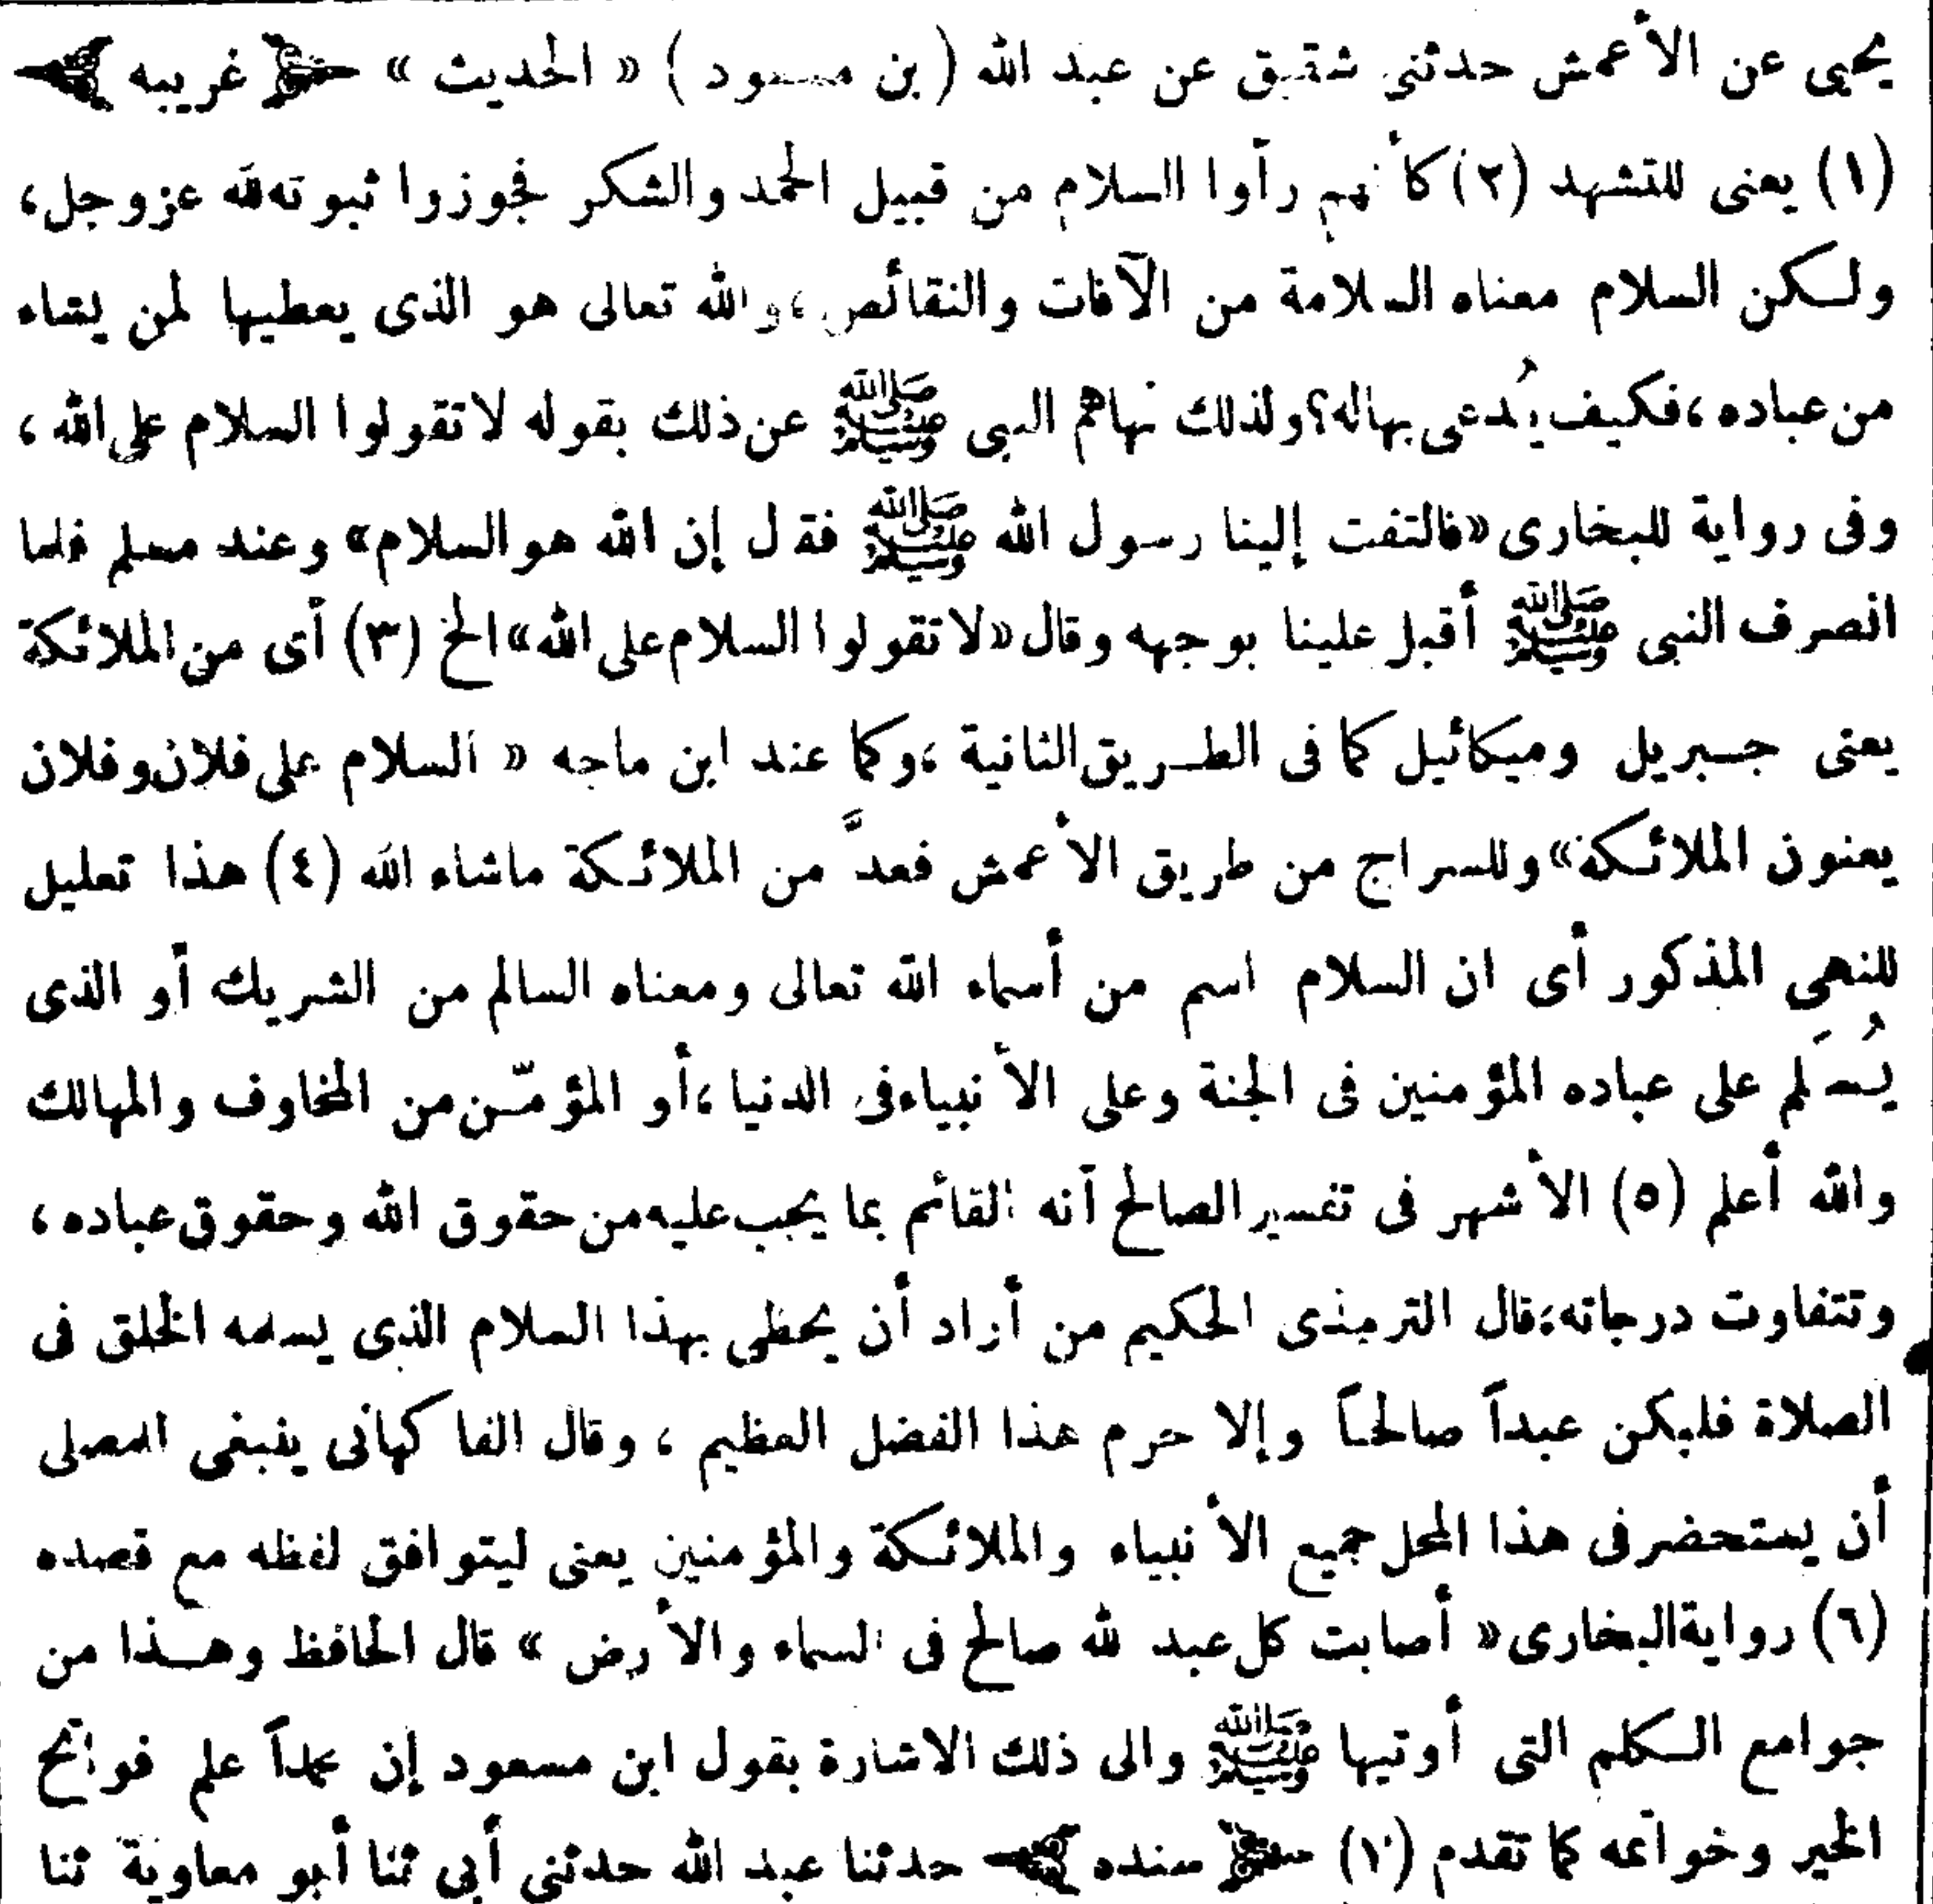 يحيى عن الأعمش حدثنى شقيق عن عبد الله (بن مسعود) « الحديث » غريبه
(١) يعنى للتشهد (٢) كأنهم رأوا السلام من قبيل الحمد والشكر فجوزوا ثبوته لله عز وجل،
ولكن السلام معناه السلامة من الآفات والنقائص، والله تعالى هو الذى يعطيها لمن يشاء
من عباده، فكيف يُدعى بها له؟ ولذلك نهاهم النبى ﷺ عن ذلك بقوله لا تقولوا السلام على الله،
وفى رواية للبخارى «فالتفت إلينا رسول الله ﷺ فقال إن الله هو السلام» وعند مسلم فلما
انصرف النبى ﷺ أقبل علينا بوجهه وقال «لا تقولوا السلام على الله» الخ (٣) أى من الملائكة
يعنى جبريل وميكائيل كما فى الطريق الثانية، وكما عند ابن ماجه « السلام على فلان وفلان
يعنون الملائكة» وللسراج من طريق الأعمش فعدَّ من الملائكة ماشاء الله (٤) هذا تعليل
للنهى المذكور أى ان السلام اسم من أسماء الله تعالى ومعناه السالم من الشريك أو الذى
يُسَلم على عباده المؤمنين فى الجنة وعلى الأنبياء فى الدنيا، أو المؤمّن من المخاوف والمهالك
والله أعلم (٥) الأشهر فى تفسير الصالح أنه القائم بما يجب عليه من حقوق الله وحقوق عباده،
وتتفاوت درجاته؛ قال الترمذى الحكيم من أراد أن يحظى بهذا السلام الذى يسلمه الخلق فى
الصلاة فليكن عبداً صالحاً وإلا حرم هذا الفضل العظيم، وقال الفاكهانى ينبغى للمصلى
أن يستحضر فى هذا المحل جميع الأنبياء والملائكة والمؤمنين يعنى ليتوافق لفظه مع قصده
(٦) رواية البخارى « أصابت كل عبد لله صالح فى السماء والأرض » قال الحافظ وهذا من
جوامع الكلم التى أوتيها ﷺ والى ذلك الاشارة بقول ابن مسعود إن محمداً علم فواتح
الخير وخواتمه كما تقدم (٧) سنده حدثنا عبد الله حدثنى أبى ثنا أبو معاوية ثنا